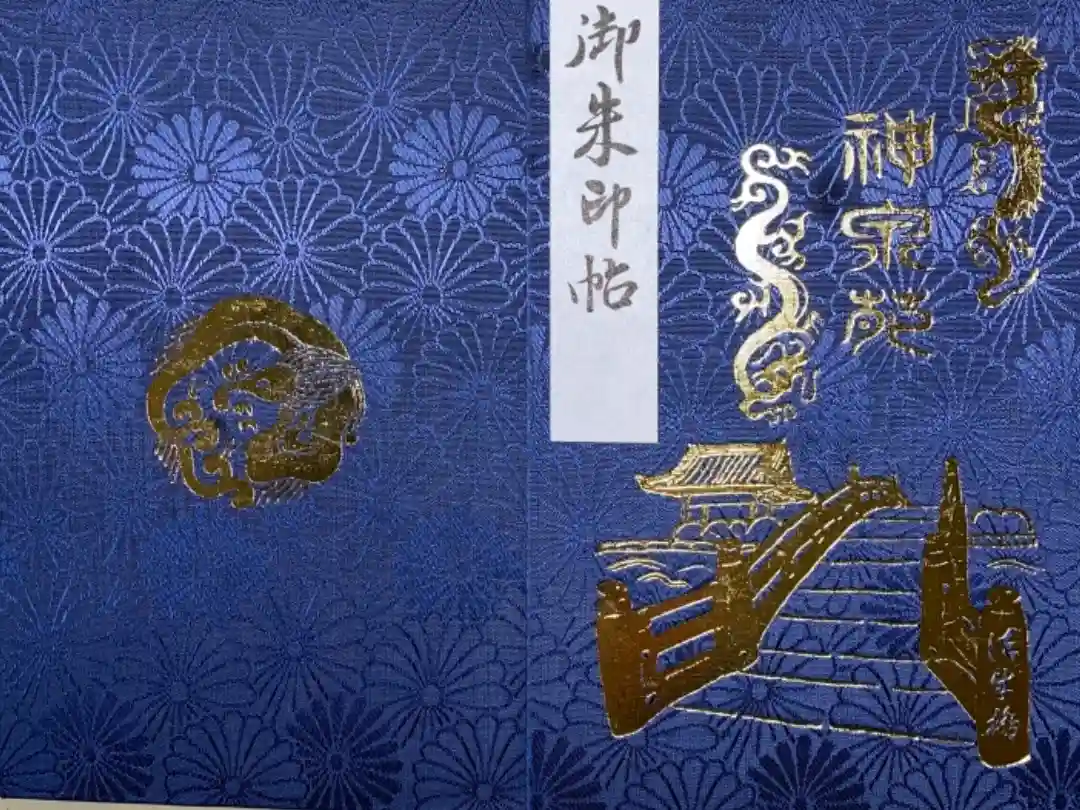 御朱印帖
神泉苑
法生橋